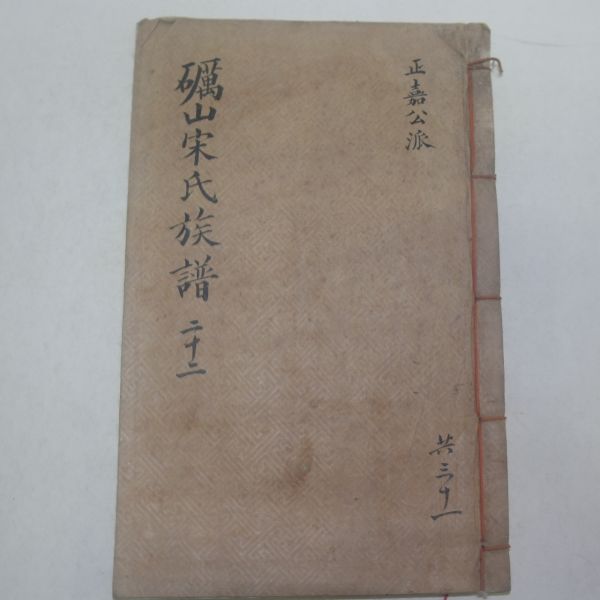 礪山宋氏族譜 二十二
正嘉公派
共三十一